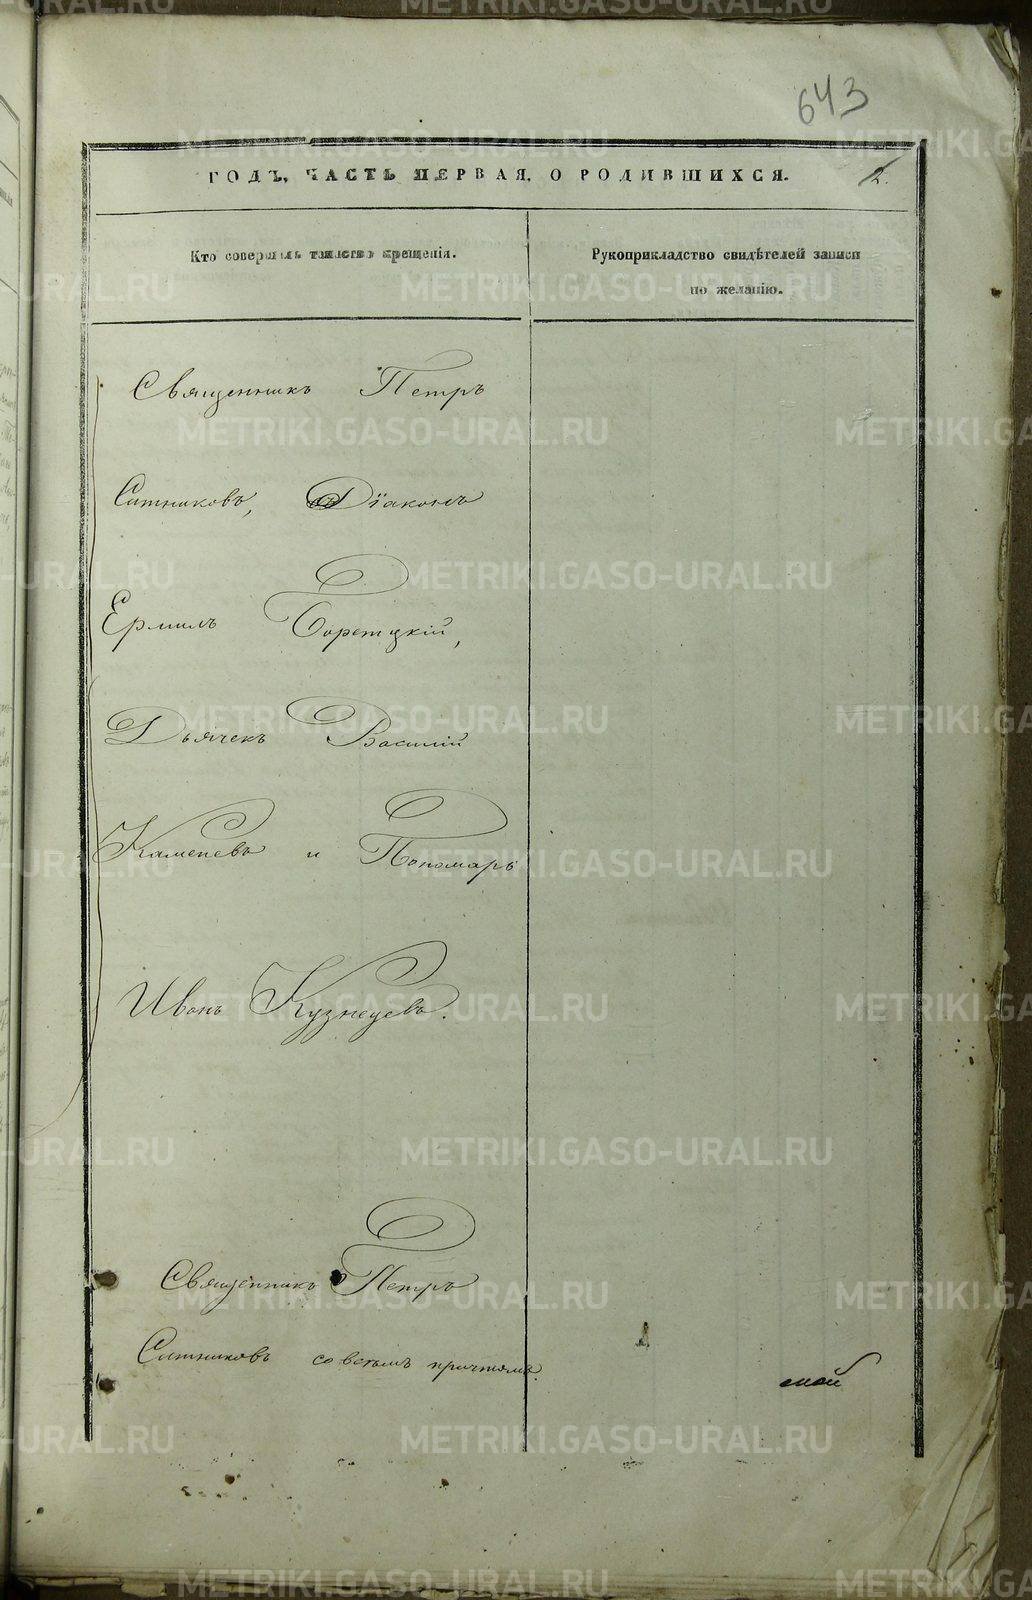 643
ГОДЪ, ЧАСТЬ ПЕРВАЯ, О РОДИВШИХСЯ.
2.
Кто совершалъ таинство крещенія.
Рукоприкладство свидѣтелей записи
по желанію.
Священникъ Петръ
Ситниковъ, Діаконъ
Ермилъ Борецкій,
Дьячекъ Василій
Каменевъ и Пономарь
Иванъ Кузнецовъ.
Священникъ Петръ
Ситниковъ со всѣмъ причтомъ.
METRIKI.GASO-URAL.RU